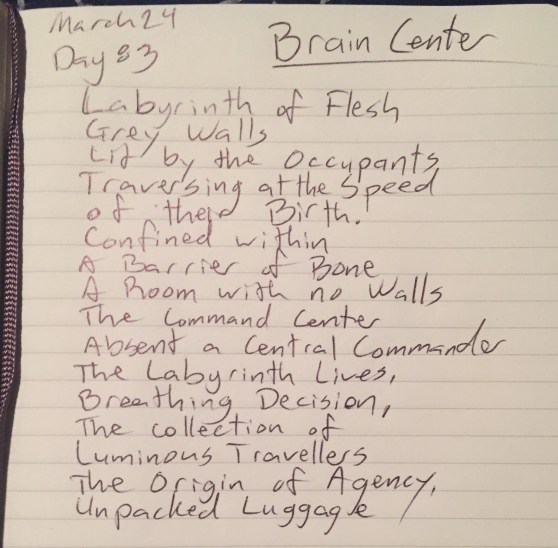 March 24
Day 83
Brain Center
Labyrinth of Flesh
Grey Walls
Lit by the Occupants
Traversing at the Speed
of their Birth.
Confined within
A Barrier of Bone
A Room with no Walls
The Command Center
Absent a Central Commander
The Labyrinth Lives,
Breathing Decision,
The collection of
Luminous Travellers
The Origin of Agency,
Unpacked Luggage